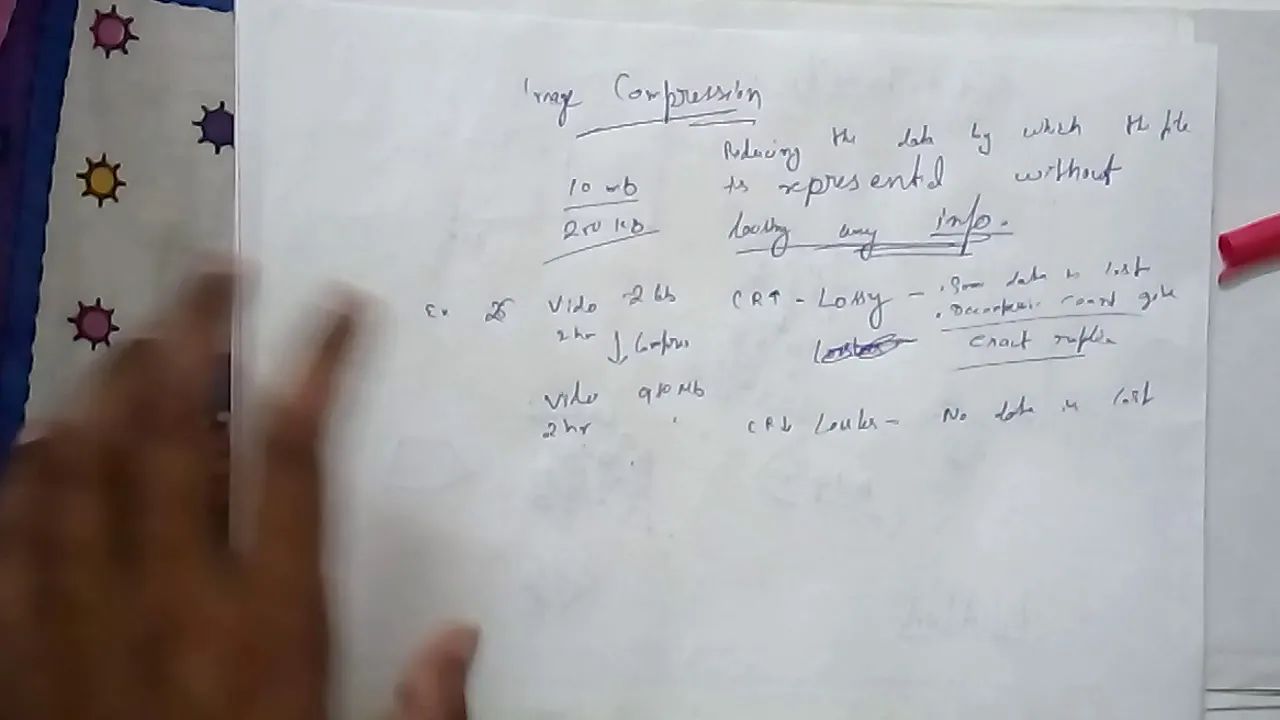 Image Compression
Reducing the data by which the file
is represented without
loosing any info.
10 mb
200 KB
Ex Video 2 Gb
2 hr
Compress
Video 910 Mb
2 hr
CR↑ - Lossy - . Some data is lost
. Decompression cannot give
exact replica
CR↓ - No data is lost